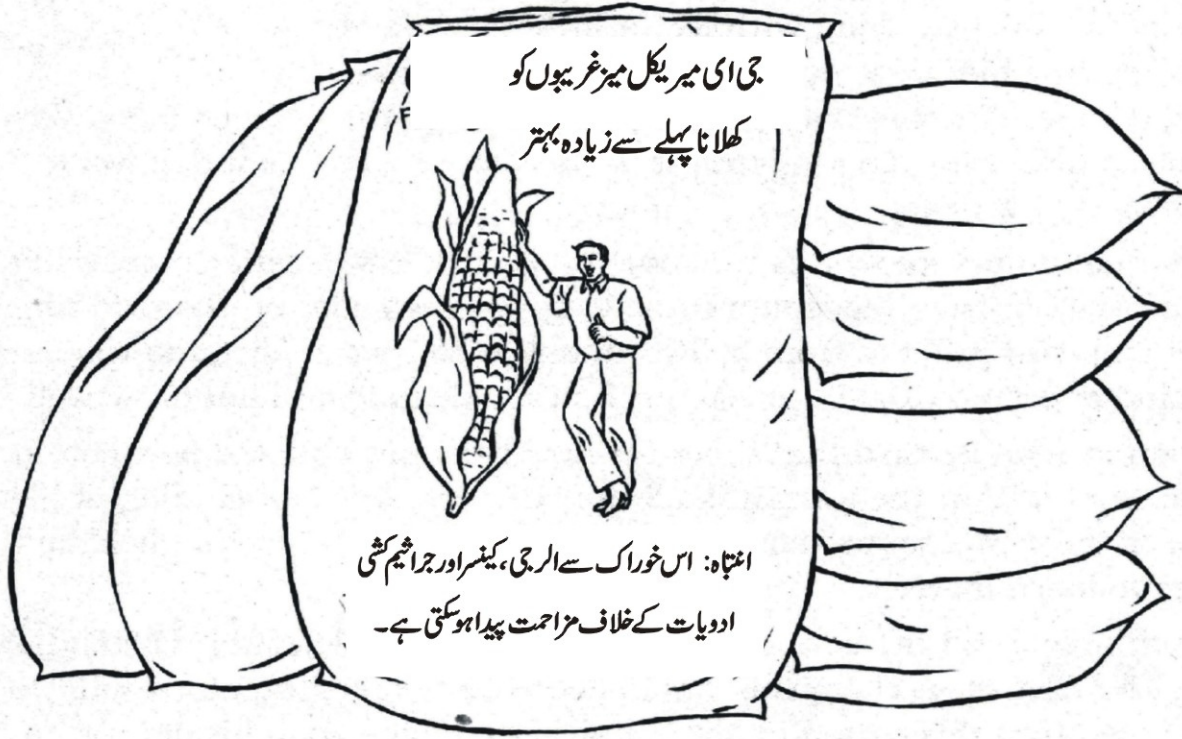 جی ای میریکل میز غریبوں کو
کھلانا پہلے سے زیادہ بہتر
انتباہ: اس خوراک سے الرجی، کینسر اور جراثیم کش
ادویات کے خلاف مزاحمت پیدا ہوسکتی ہے۔